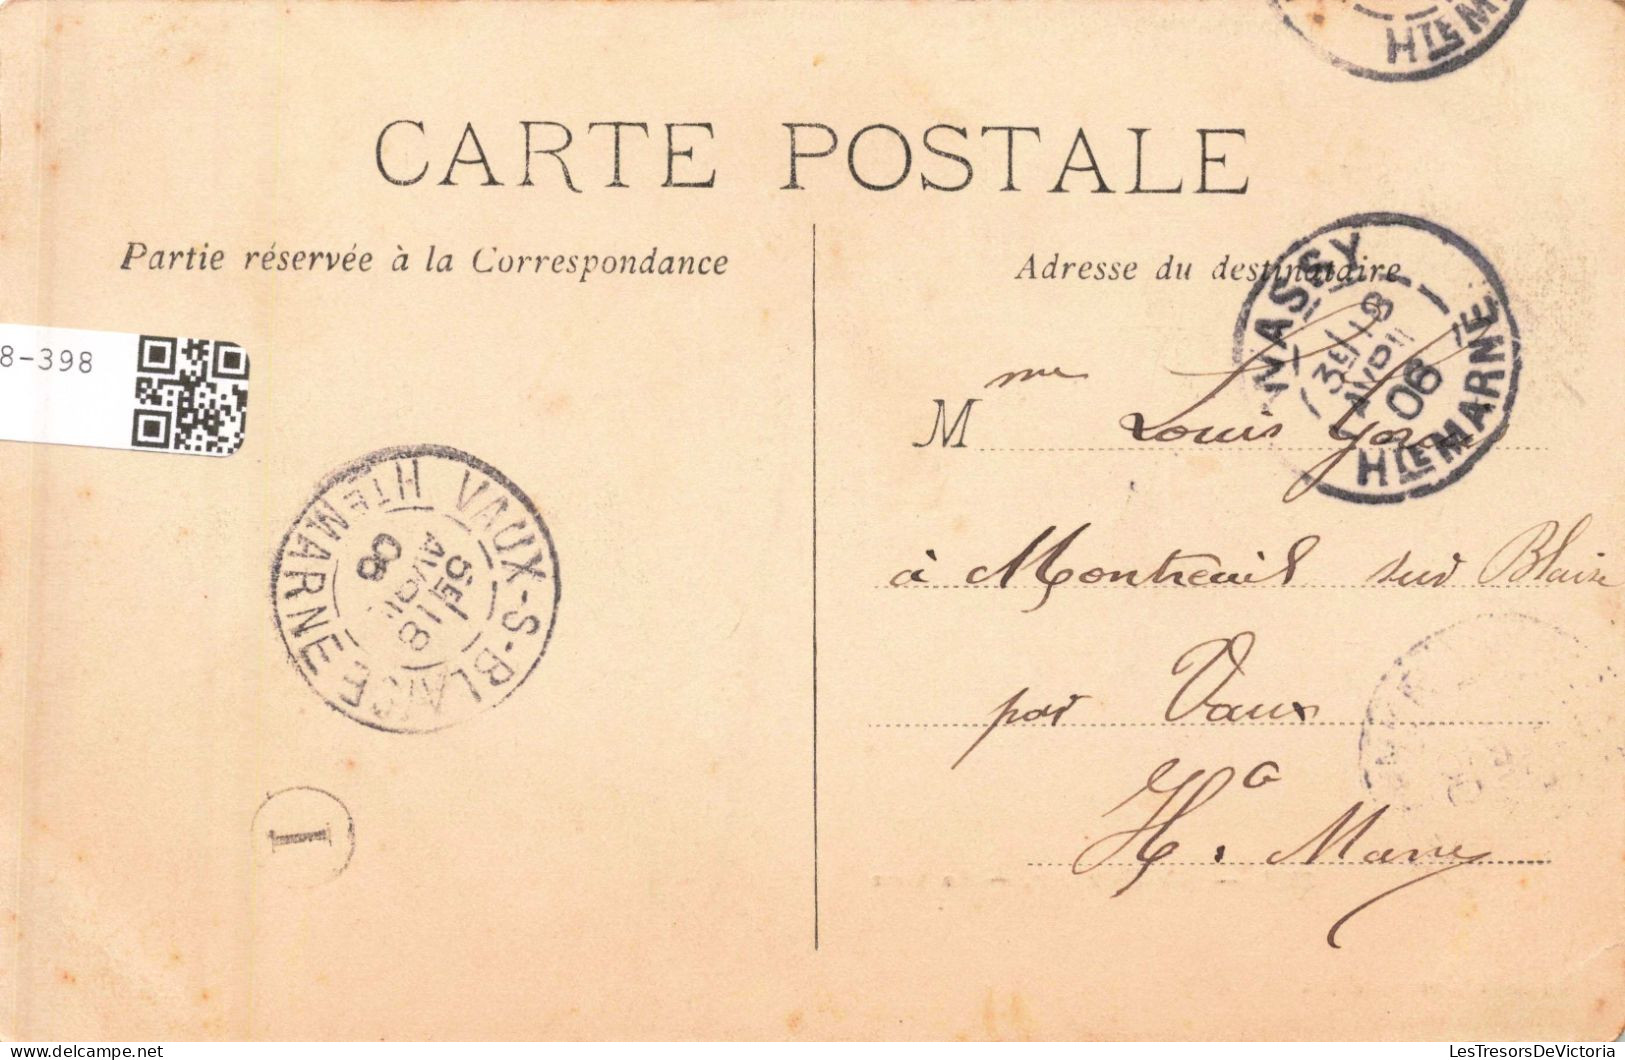 HTE M
CARTE POSTALE
Partie réservée à la Correspondance
Adresse du destinataire
8-398
WASSY
3E/18
AVRIL
06
HTE MARNE
Mme Louis
à Montreuil sur Blaise
par Vaux
Hte Marne
VAUX-S-BLAISE
5E/18
AVRIL
06
HTE MARNE
I
LesTresorsDeVictoria